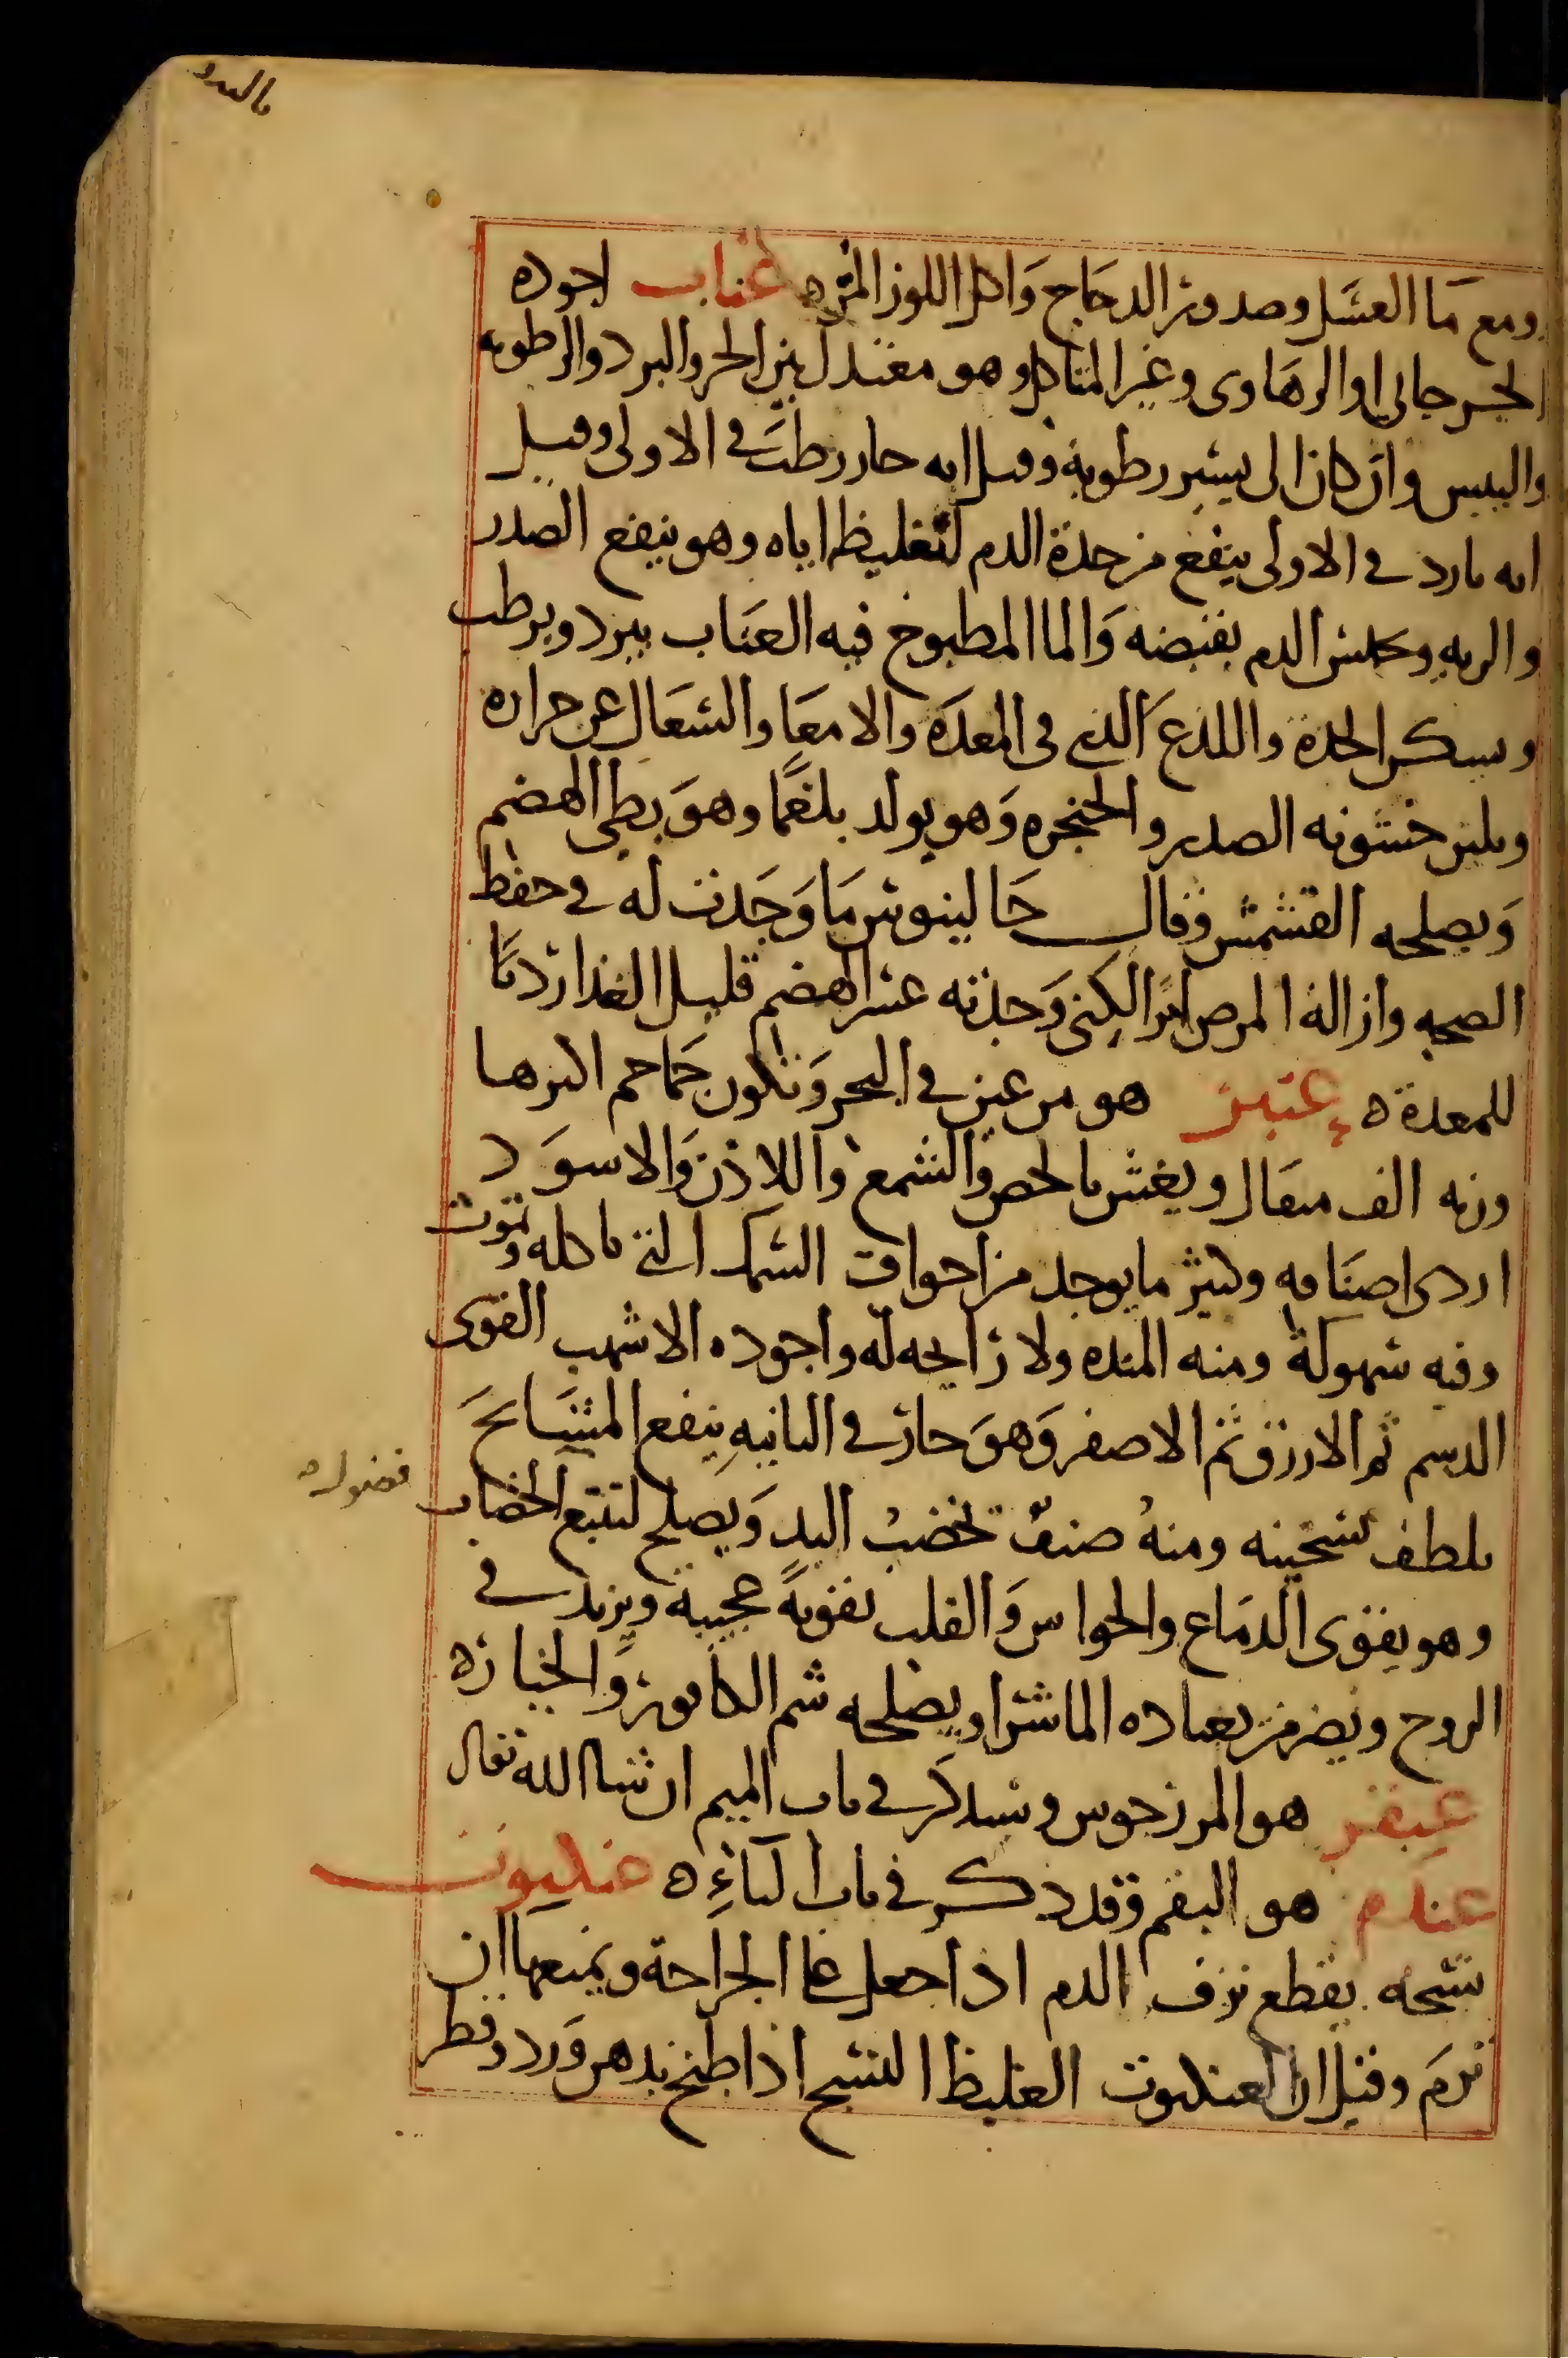 بالبدو
ومع ما العسل وصدور الدجاج واكل اللوز المره عناب اجوده
الجرجاني او الرهاوى وغير المتاكل وهو معتدل بين الحر والبرد والرطوبه
واليبس وان كان الى يسير رطوبة وقيل انه حار رطب في الاولى وقيل
انه بارد في الاولى ينفع من حدة الدم لتغليظه اياه وهو ينفع الصدر
والريه ويحبس الدم بقبضه والما المطبوخ فيه العناب يبرد ويرطب
ويسكن الحدة واللذع الذي في المعدة والامعا والسعال عن حراره
ويلين خشونه الصدر والحنجره وهو يولد بلغما وهو بطي الهضم
ويصلحه القشمش وقال جالينوس ما وجدت له في حفظ
الصحه وازالة المرض اثرا لكنى وجدته عسر الهضم قليل الغذا رديا
للمعدة ه عنبر هو من عين في البحر وتكون جماجم اكبرها
وزنه الف مثقال ويغش بالجص والشمع واللاذن والاسود
اردى اصنافه وكثير ما يوجد من اجواف السمك التي تاكله وتموت
وفيه سهوكة ومنه المنده ولا رايحه له واجوده الاشهب القوى
الدسم ثم الازرق ثم الاصفر وهو حار في الثانيه ينفع المشايخ
بلطف تسخينه ومنه صنف تخضب اليد ويصلح لتتبع الخضاب
فضوله
وهو يقوى الدماغ والحواس والقلب تقوية عجيبة ويزيد في
الروح ويضر من يعتاده الماشرا ويصلحه شم الكافور والخياره
عبقر هو المرزجوس وسيذكر في باب الميم ان شا الله تعالى
عندم هو البقم وقد ذكر في باب الباءه عنكبوت
نسجه يقطع نزف الدم اذا جعل على الجراحة ويمنعها ان
ترم وقيل ان العنكبوت الغليظ النسج اذا طبخ بدهن ورد وقطر